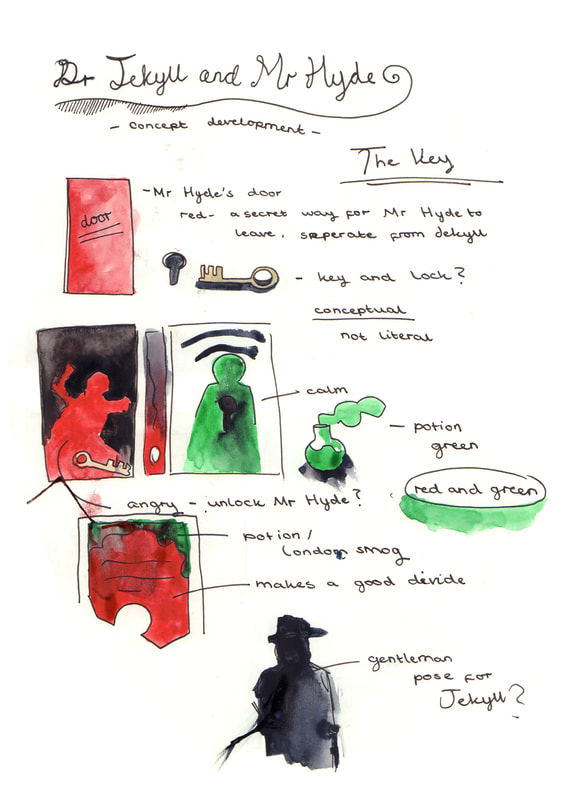 Dr Jekyll and Mr Hyde
- concept development -
The Key
door
- Mr Hyde's door
red - a secret way for Mr Hyde to
leave, seperate from Jekyll
- key and lock?
conceptual
not literal
calm
- potion
green
red and green
angry - unlock Mr Hyde?
potion /
London smog
makes a good divide
gentleman
pose for
Jekyll?